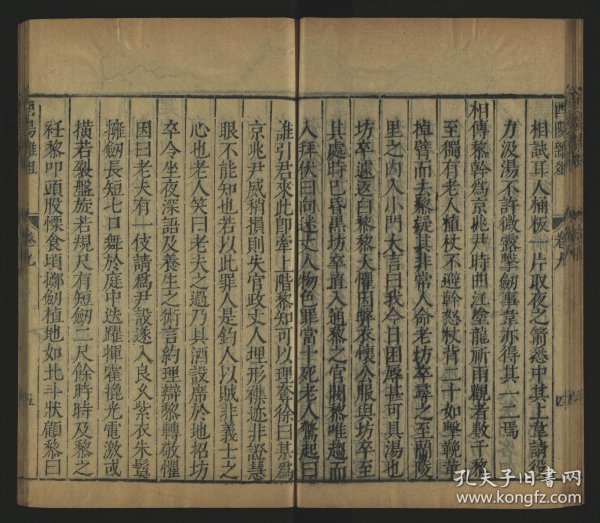 酉陽雜俎
卷九
四
相訣耳人桶板一片取夜之箭悉中其上韋請役
力汲湯不許微露擊劒事韋亦得其一二焉
相傳黎幹爲京兆尹時曲江塗龍祈雨觀者數千黎
至獨有老人植杖不避幹怒杖背二十如擊鞔革
掉臂而去黎疑其非常人命老坊卒尋之至蘭陵
里之内入小門大言曰我今日困辱甚可具湯也
坊卒遽返白黎黎大懼因弊衣懷公服與坊卒至
其處時已昏黑坊卒直入通黎之官閥黎唯趨而
入拜伏曰向迷丈人物色罪當十死老人驚起曰
誰引君來此即牽上階黎知可以理奪徐曰某爲
京兆尹威稍損則失官政丈人埋形雜迹非證慧
眼不能知也若以此罪人是釣人以賊非義士之
心也老人笑曰老夫之過乃具酒設席於地招坊
卒令坐夜深語及養生之術言約理辯黎轉敬懼
因曰老夫有一伎請爲尹設遂入良久紫衣朱鬒
擁劒長短七口舞於庭中迭躍揮霍攙光電激或
横若裂盤旋若規尺有短劒二尺餘時時及黎之
衽黎叩頭股慄食頃擲劒植地如北斗狀顧黎曰
酉陽雜俎
卷九
五
孔夫子旧書网
www.kongfz.com